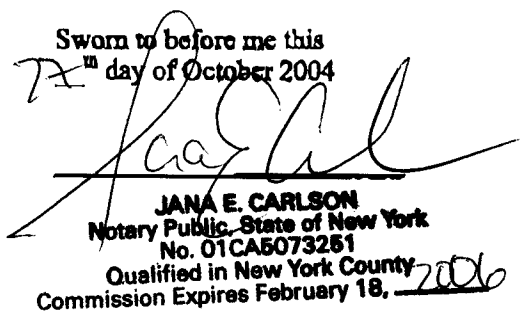 Sworn to before me this
7th day of October 2004
JANA E. CARLSON
Notary Public, State of New York
No. 01CA5073251
Qualified in New York County
Commission Expires February 18, 2006